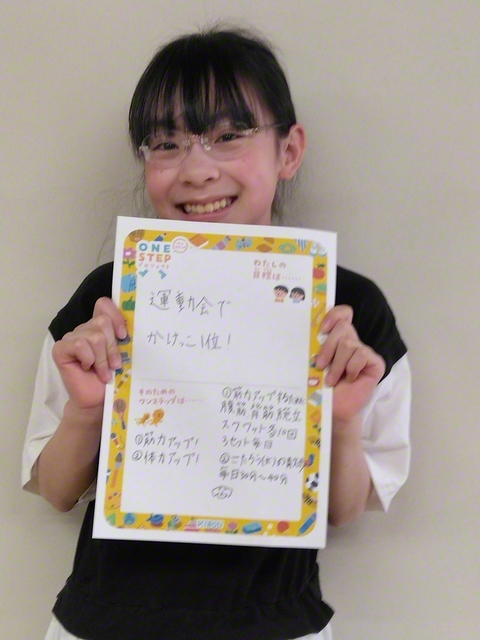 ONE
STEP
プロジェクト
わたしの
目標は……
運動会で
かけっこ1位!
そのための
ワンステップは……
①筋力アップ!
②体力アップ!
①筋力アップするために
腹筋 背筋 腕立
スクワット各10回
3セット毎日
②こたろう(犬)の散歩
毎日30分〜40分